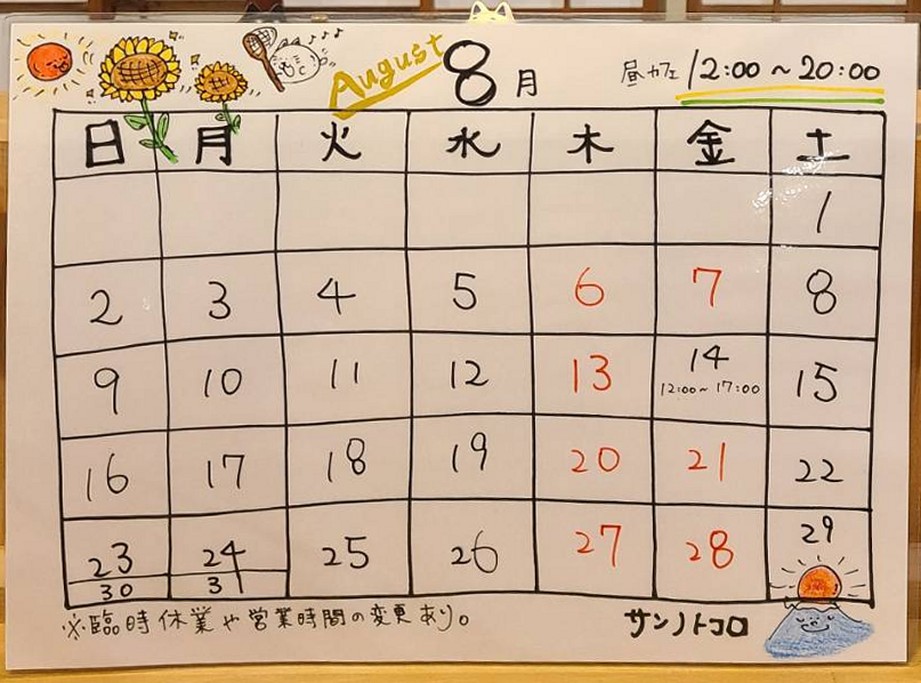 August 8月 昼カフェ 12:00～20:00
日 月 火 水 木 金 土
1
2 3 4 5 6 7 8
9 10 11 12 13 14 15
12:00～17:00
16 17 18 19 20 21 22
23 24 25 26 27 28 29
30 31
※臨時休業や営業時間の変更あり。
サンノトコロ